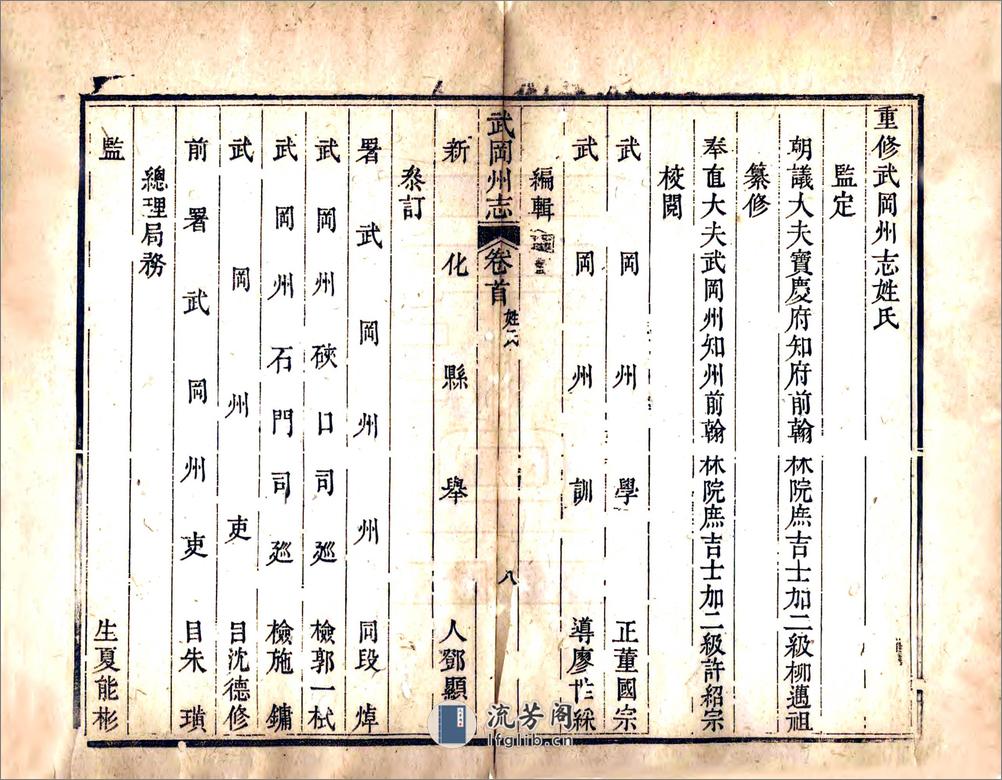 重修武岡州志姓氏
監定
朝議大夫寶慶府知府前翰林院庶吉士加二級柳邁祖
纂修
奉直大夫武岡州知州前翰林院庶吉士加二級許紹宗
校閱
武岡州學正董國宗
武岡州訓導廖世綵
編輯
武岡州志 卷首 姓氏 八
新化縣舉人鄧顯
叅訂
署武岡州州同段焯
武岡州硤口司廵檢郭一栻
武岡州石門司廵檢施鏞
武岡州吏目沈德修
前署武岡州吏目朱璜
總理局務
監生夏能彬
流芳阁
lfglib.cn